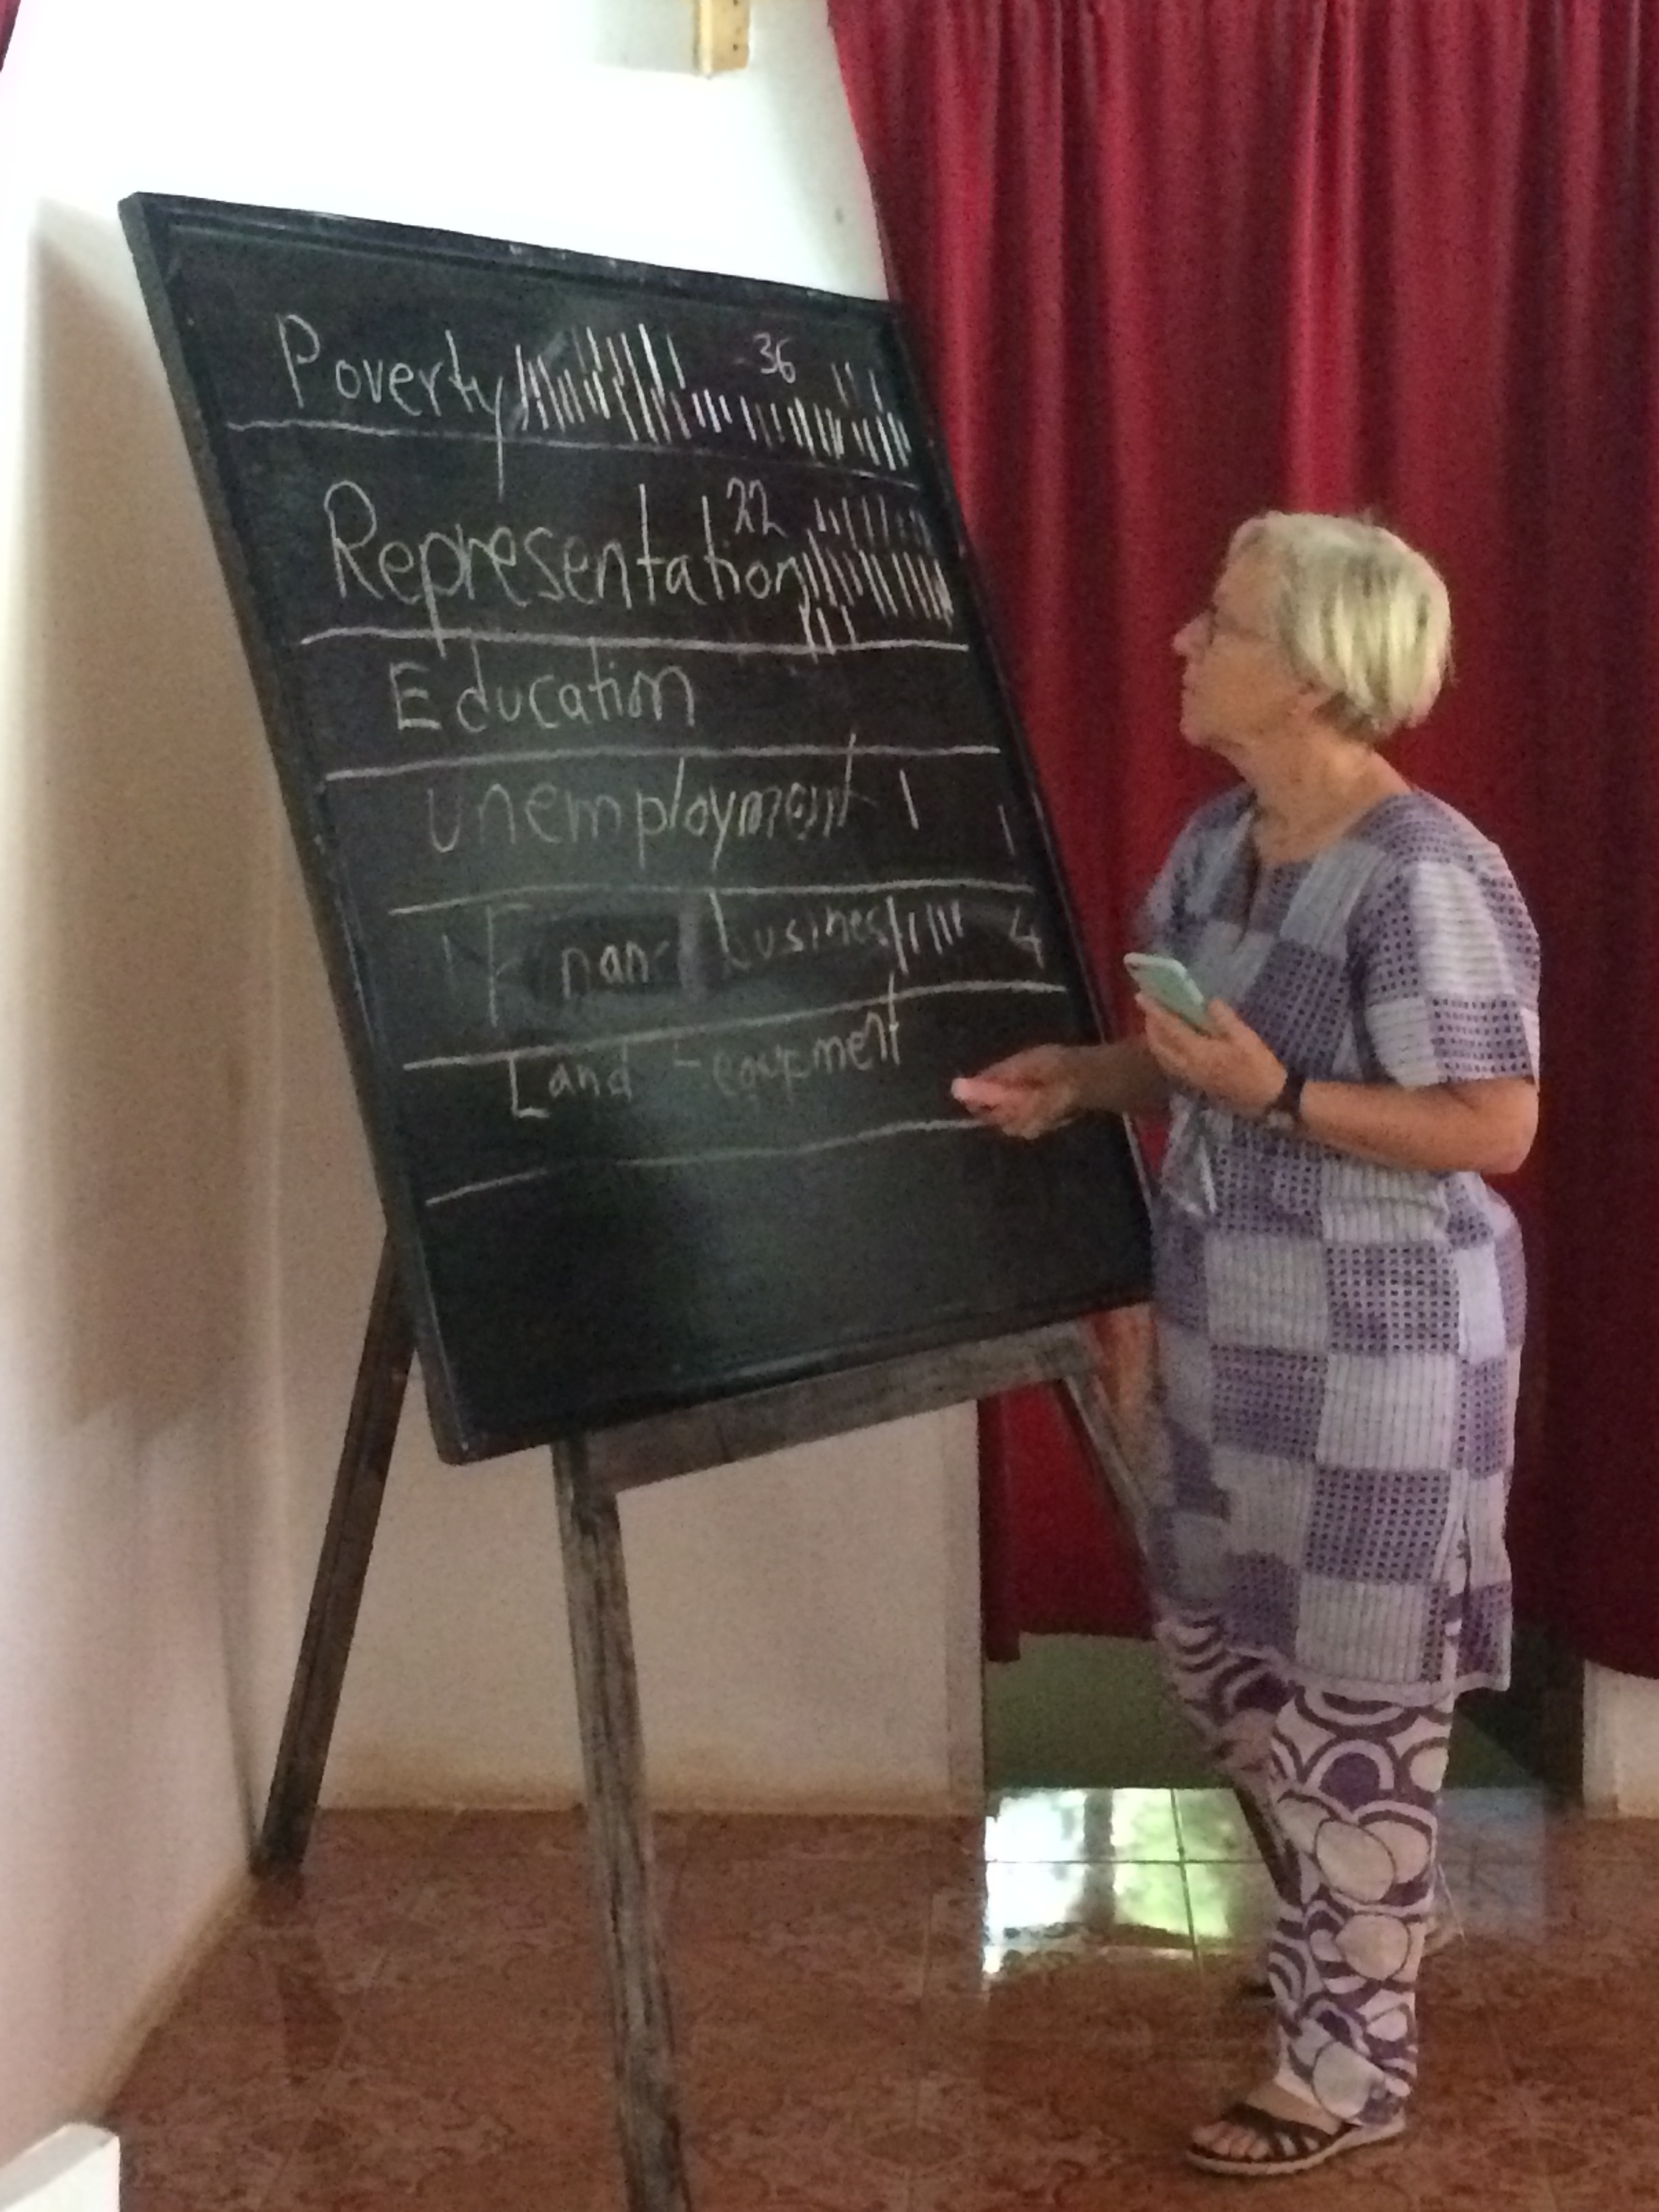 Poverty 36
Representation 22
Education
Unemployment 1 1
Finan business 4
Land equipment